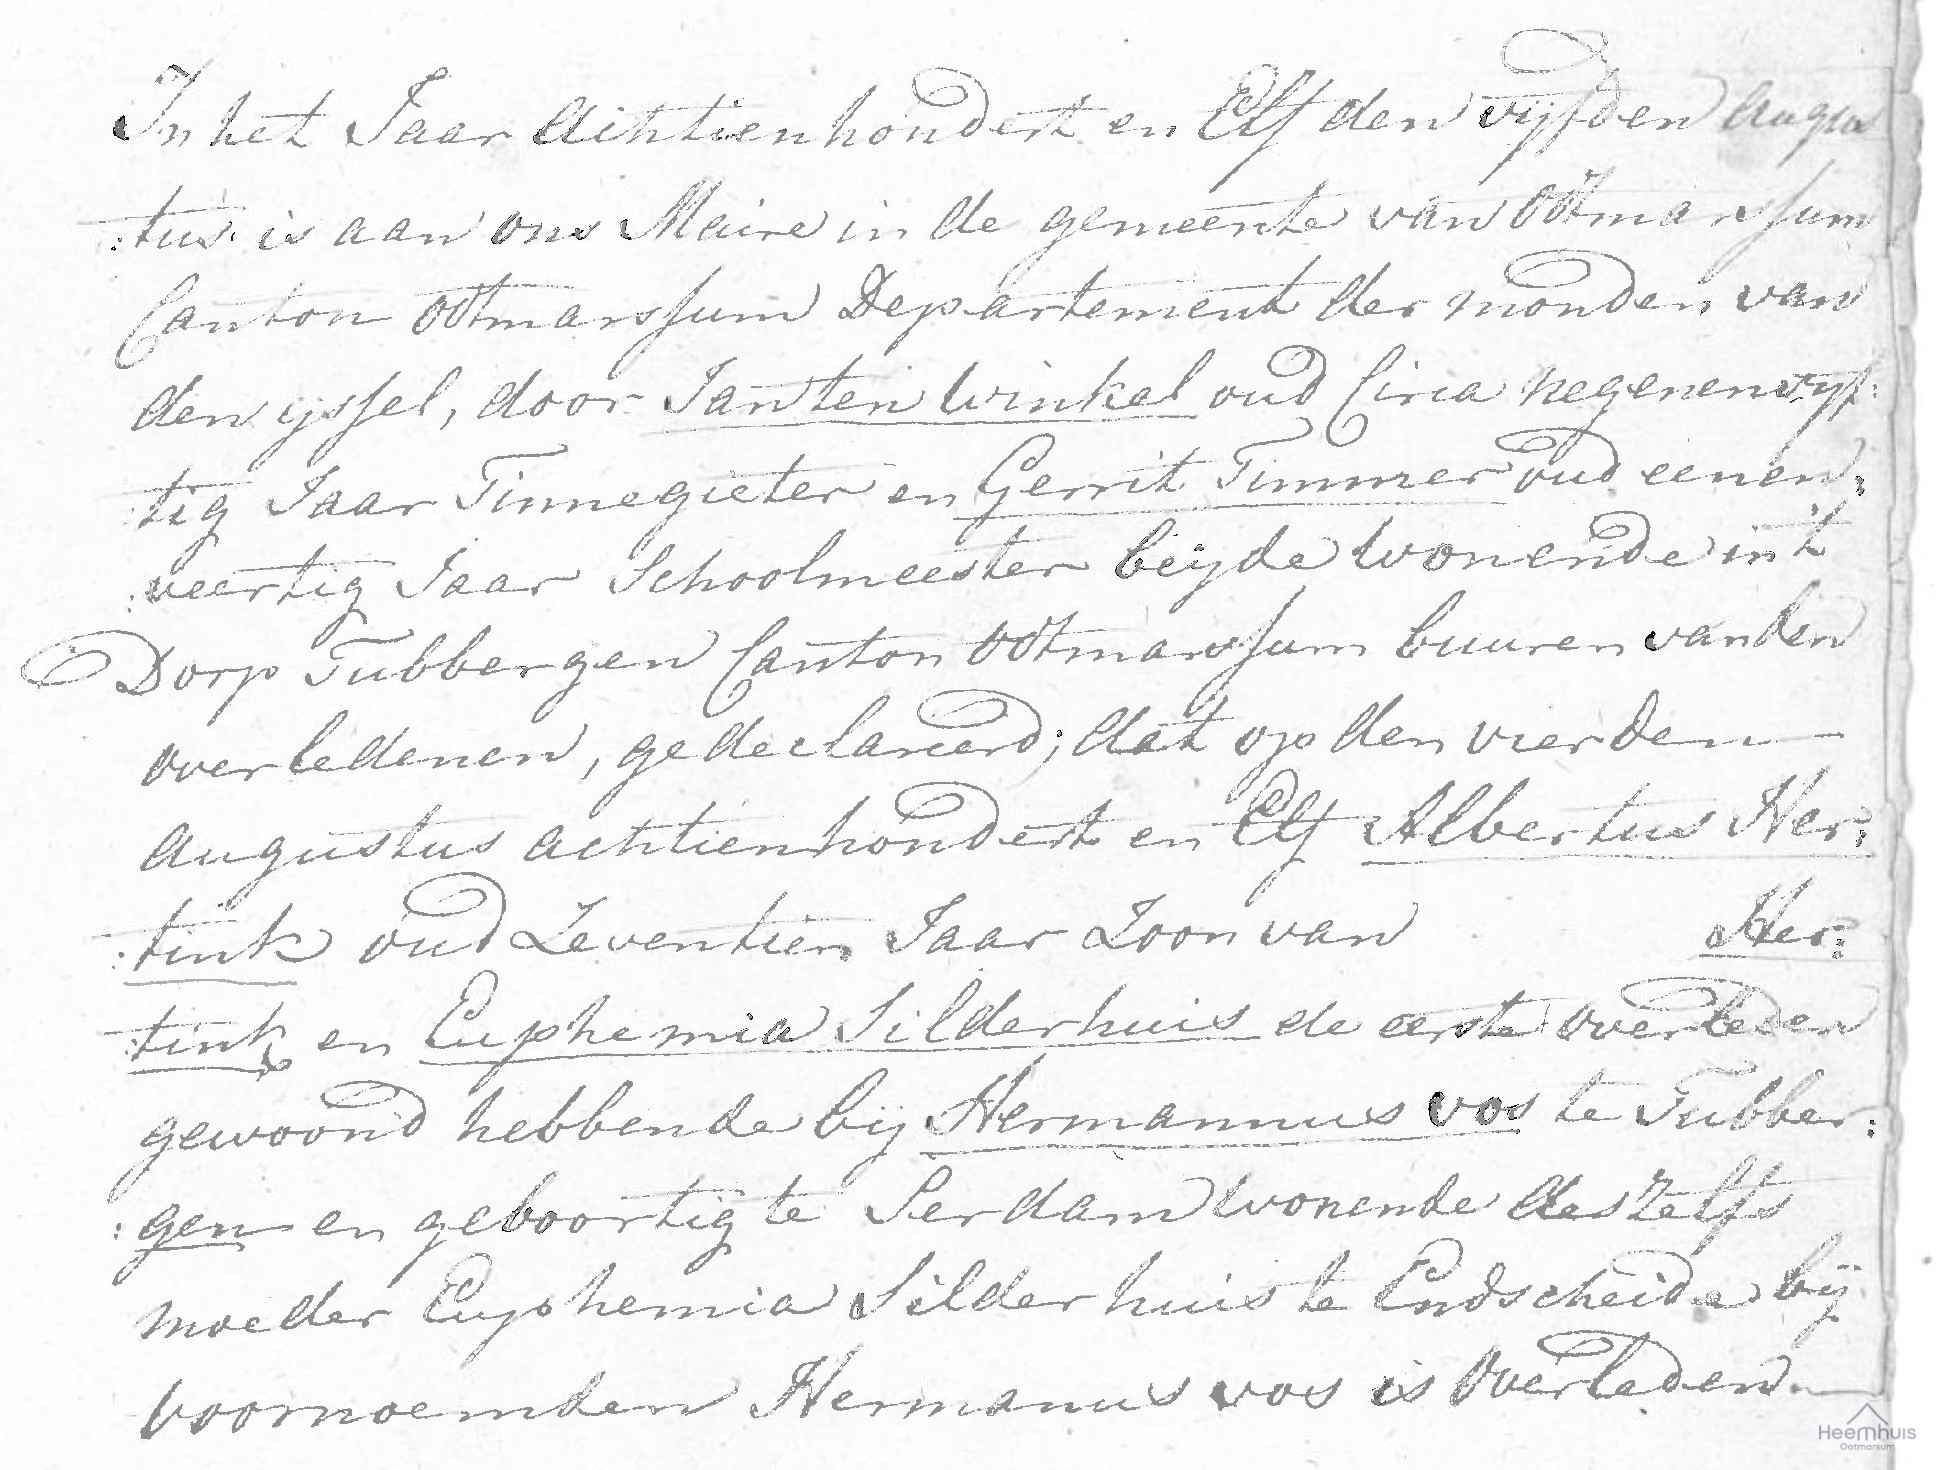 In het Jaar Achttienhondert en Elf den vijfden Augus
:tus is aan ons Maire in de gemeente van Ootmarssum
Canton Ootmarssum Departement der monden van
den ijssel, door Jan ten Winkel oud Circa negenenvyf:
:tig Jaar Tinnegieter en Gerrit Timmer oud eenen:
:veertig Jaar Schoolmeester beijde wonende in 't
Dorp Tubbergen Canton Ootmarssum buuren van den
overledenen, gedeclareerd; dat op den vierden
augustus achttienhondert en Elf Albertus Her:
:tink oud Zeventien Jaar Zoon van Her:
:tink en Euphemia Silderhuis de eerste overleden
gewoond hebbende bij Hermannus vos te Tubber:
:gen en geboortig te Serdam wonende deszelfs
moeder Euphemia Silderhuis te Endscheide bij
voornoemden Hermanus vos is Overleden.
Heemhuis
Ootmarsum